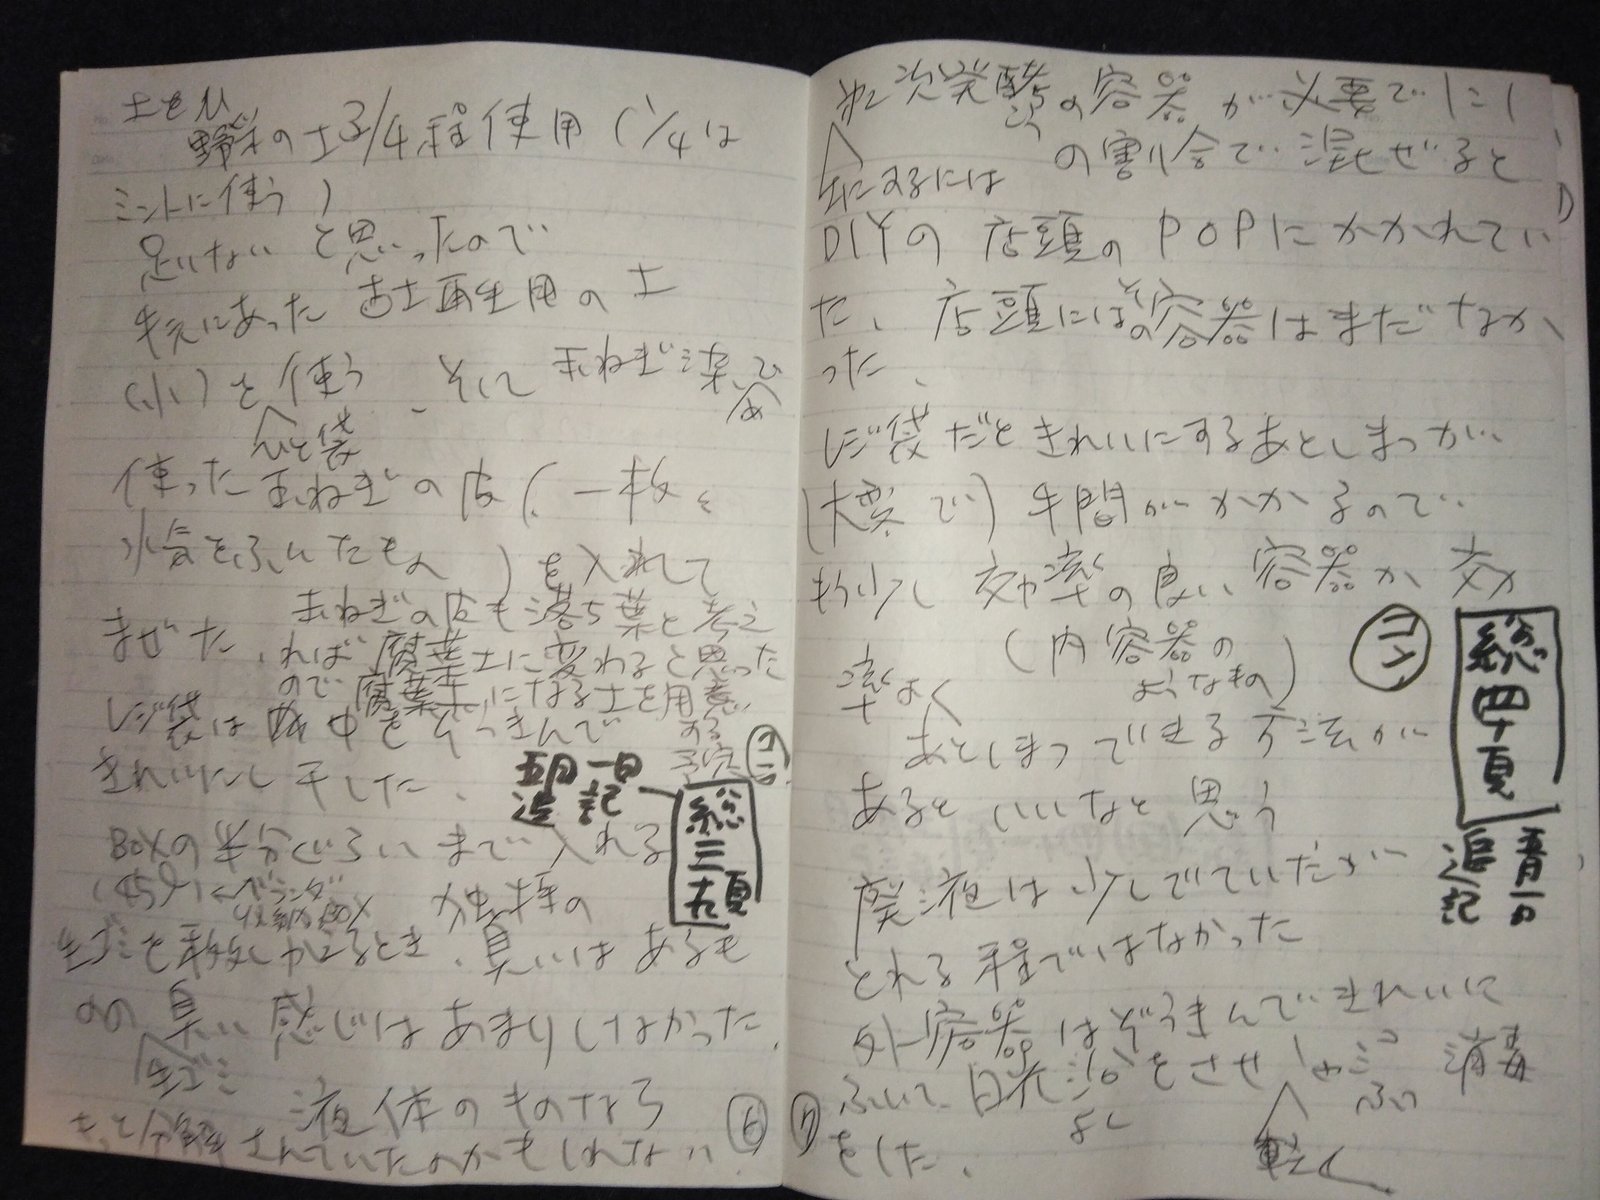 土をひ
野菜の土3/4程使用(1/4は
ミントに使う)
足りないと思ったので
手元にあった古土再生用の土
(小)を使う、そして玉ねぎ染め
ひと袋
使った玉ねぎの皮(一枚
水気をふいたもの)を入れて
まぜた、玉ねぎの皮も落ち葉と考え
れば腐葉土に変わると思った
ので腐葉土になる土を用意
する
予定
レジ袋は中をぞうきんで
きれいにし干した、
五月一日
追記
総三十九頁
BOXの半分ぐらいまで入れる
(45ℓ)←ベランダ
収納BOX
独特の
生ゴミを移しかえるとき、臭いはあるも
のの臭い感じはあまりしなかった、
生ゴミ
液体のものなら
もっと分解されていたのかもしれない
⑥
二次発酵の容器が必要で1:1
の割合で混ぜると
土にするには
DIYの店頭のPOPにかかれてい
た、店頭にはその容器はまだなか
った、
レジ袋だときれいにするあとしまつが
(大変で)手間がかかるので
もう少し効率の良い容器か効
(内容器の
ようなもの)
率よく
あとしまつできる方法が
あるといいなと思う
コン
総四十頁
五月一日
追記
廃液は少しでていたが
とれる程ではなかった
外容器はぞうきんできれいに
ふいて、日光浴をさせ 消毒
をした、
軽く
⑦